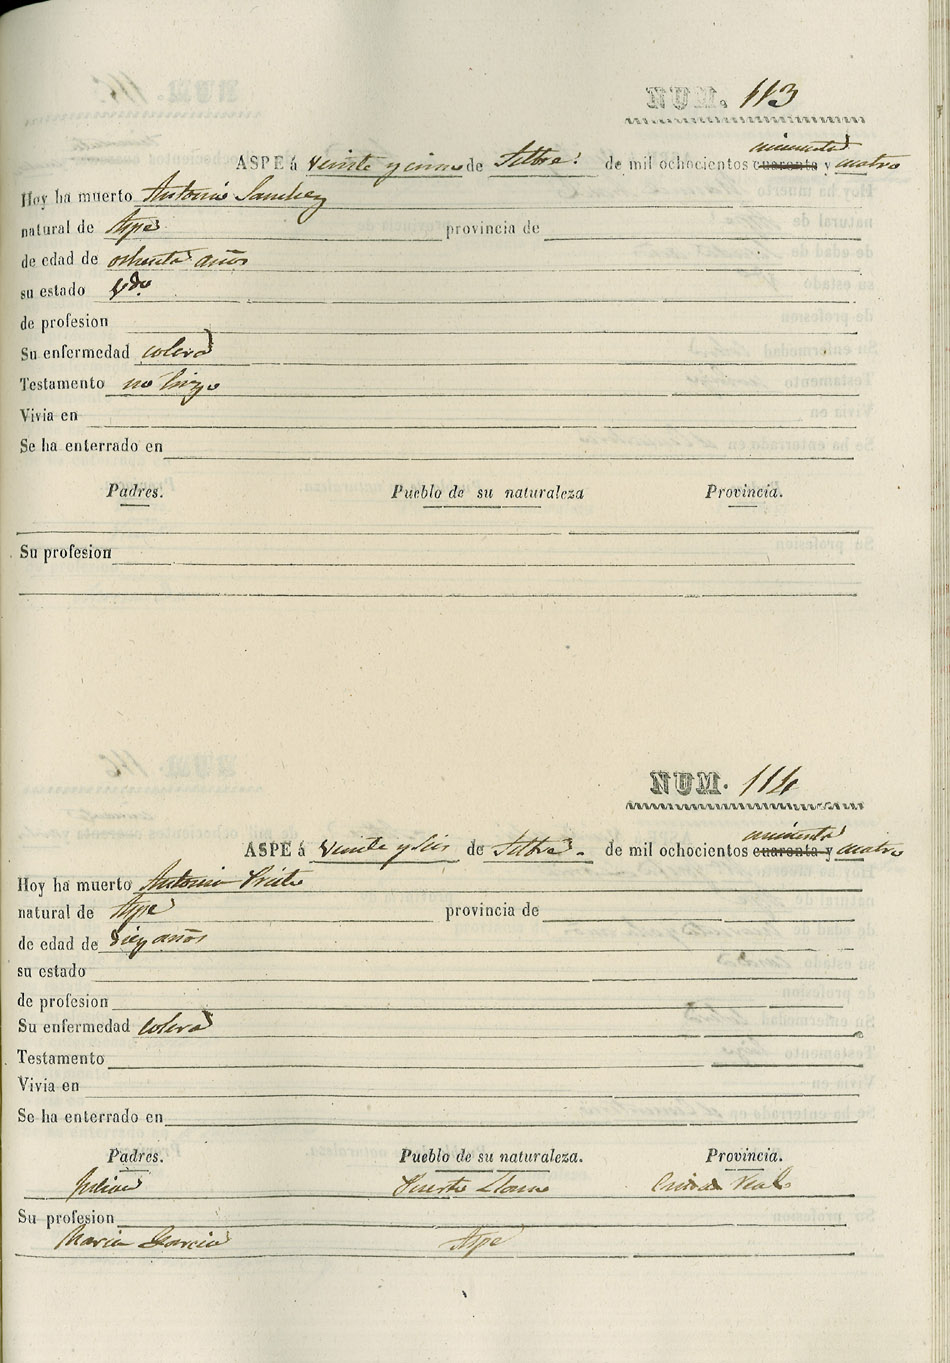 NUM. 113
ASPE á veinte y cinco de Setbre. de mil ochocientos cuarenta cincuenta y cuatro
Hoy ha muerto Antonio Sanchez
natural de Aspe provincia de
de edad de ochenta años
su estado Vdo
de profesion
Su enfermedad colera
Testamento no hizo
Vivia en
Se ha enterrado en
Padres. Pueblo de su naturaleza Provincia.
Su profesion
NUM. 114
ASPE á veinte y seis de Setbre. de mil ochocientos cuarenta cincuenta y cuatro
Hoy ha muerto Antonio Prieto
natural de Aspe provincia de
de edad de diez años
su estado
de profesion
Su enfermedad colera
Testamento
Vivia en
Se ha enterrado en
Padres. Pueblo de su naturaleza. Provincia.
Julian Puerto Llano Ciudad Real
Su profesion
Maria Garcia Aspe